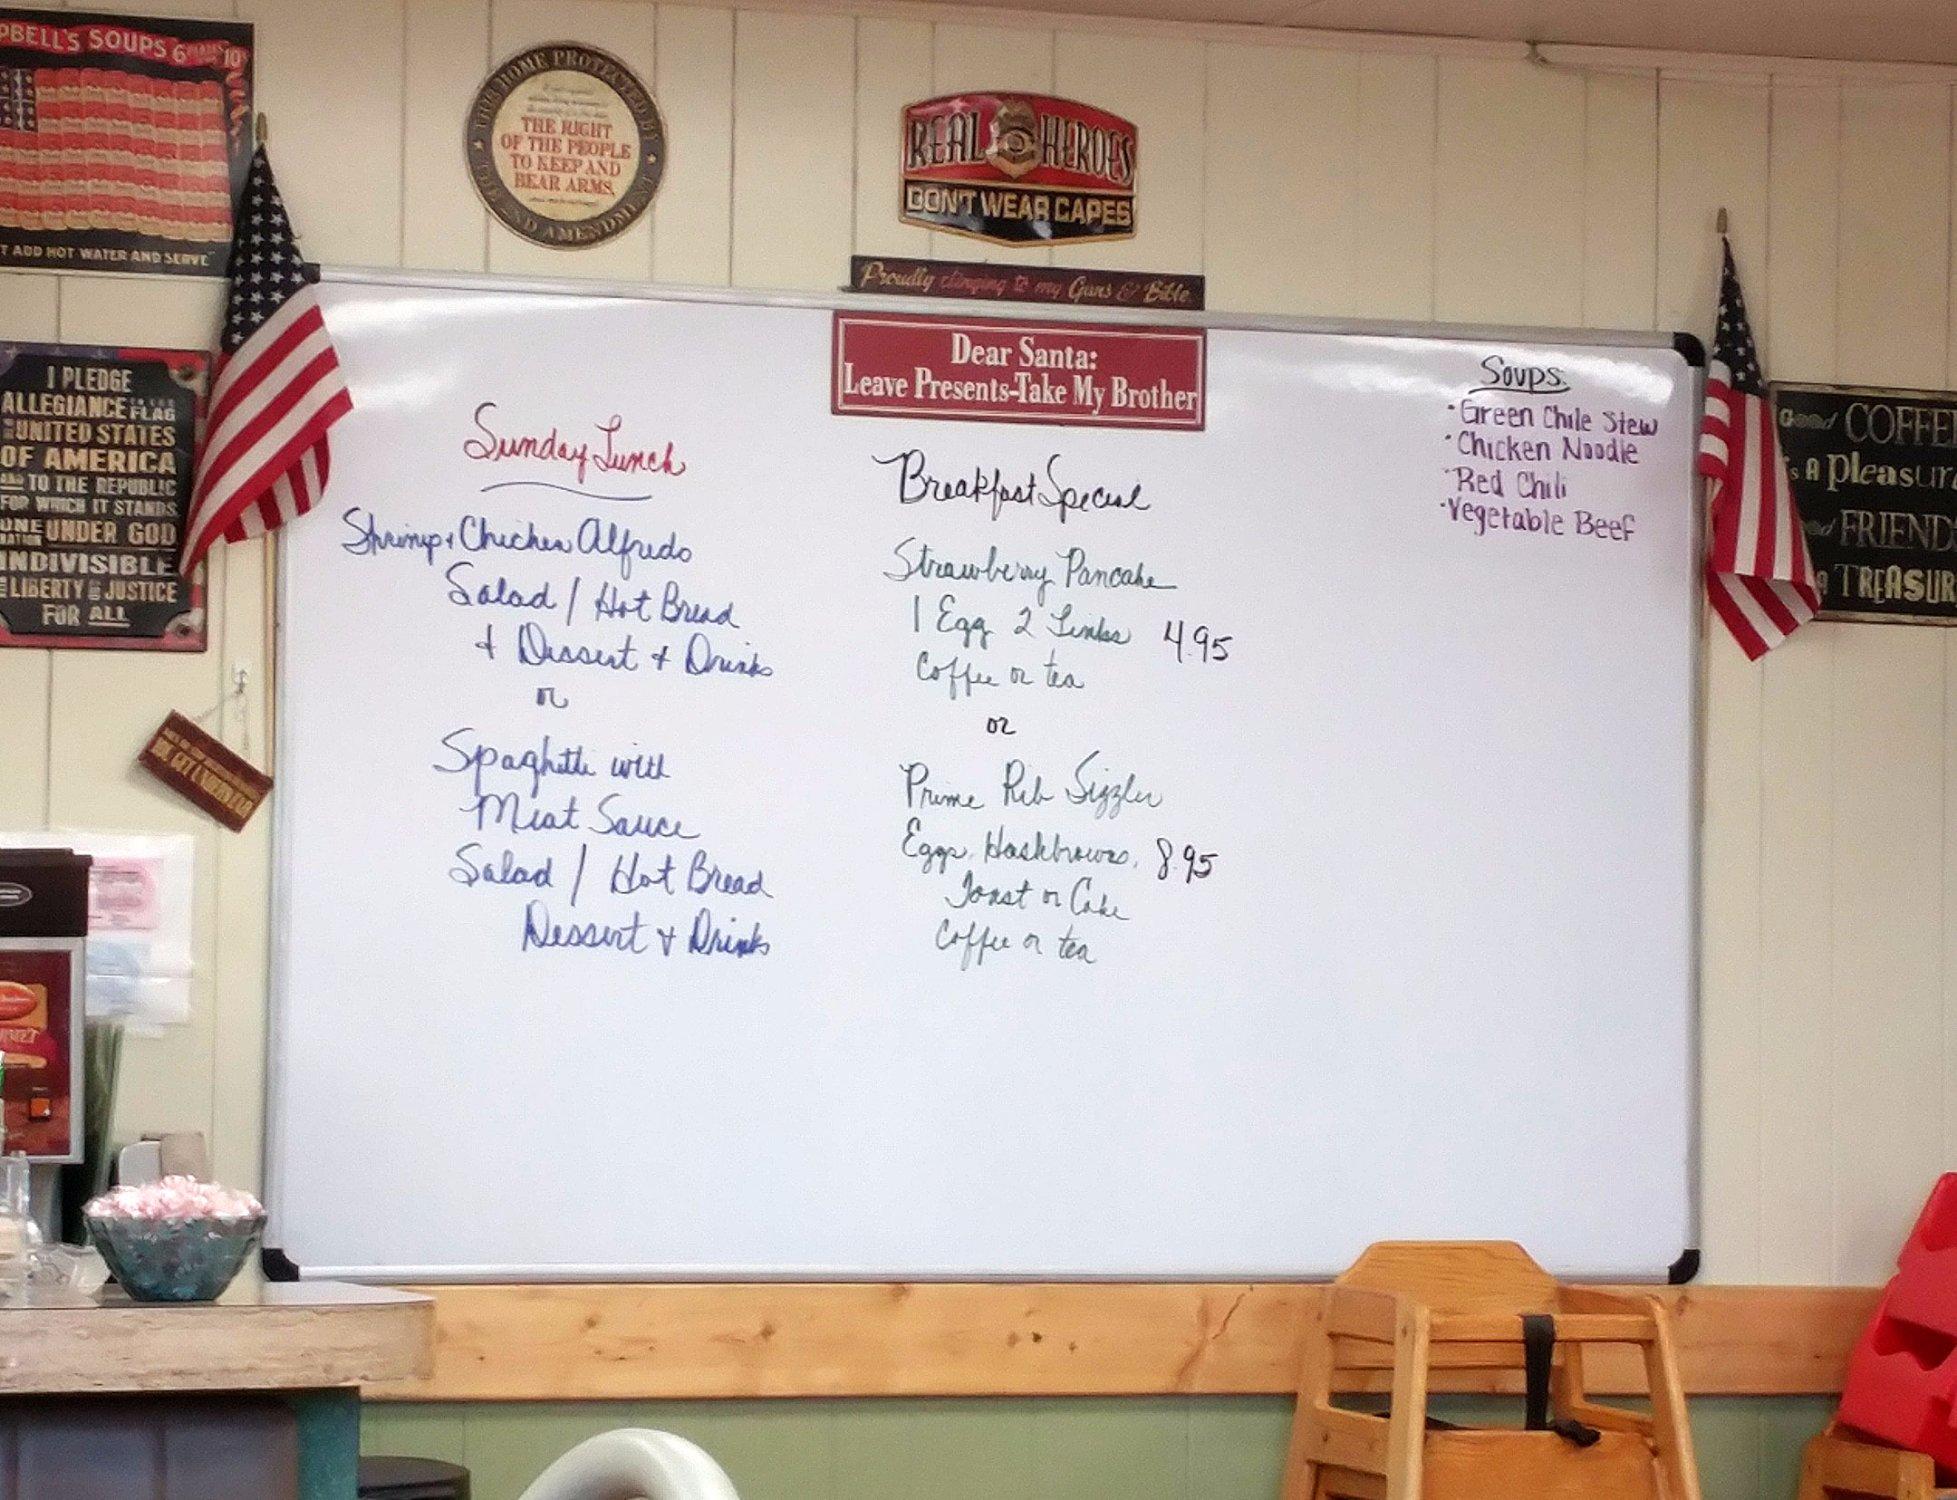 PBELL'S SOUPS 6 10¢
T ADD HOT WATER AND SERVE"
THIS HOME PROTECTED BY
THE RIGHT
OF THE PEOPLE
TO KEEP AND
BEAR ARMS.
THE 2ND AMENDMENT
REAL HEROES
DON'T WEAR CAPES
Proudly clinging to my Guns & Bible
Dear Santa:
Leave Presents-Take My Brother
I PLEDGE
ALLEGIANCE TO THE FLAG
OF THE UNITED STATES
OF AMERICA
AND TO THE REPUBLIC
FOR WHICH IT STANDS
ONE NATION UNDER GOD
INDIVISIBLE
LIBERTY & JUSTICE
FOR ALL
Sunday Lunch
Shrimp + Chicken Alfredo
Salad / Hot Bread
+ Dessert + Drinks
or
Spaghetti with
Meat Sauce
Salad / Hot Bread
Dessert + Drinks
Breakfast Special
Strawberry Pancake
1 Egg 2 Links 4.95
Coffee or tea
or
Prime Rib Sizzler
Eggs, Hashbrowns, 8.95
Toast or Cake
Coffee or tea
Soups:
·Green Chile Stew
·Chicken Noodle
·Red Chili
·Vegetable Beef
Good COFFEE
is A Pleasur
Good FRIEND
A TREASUR